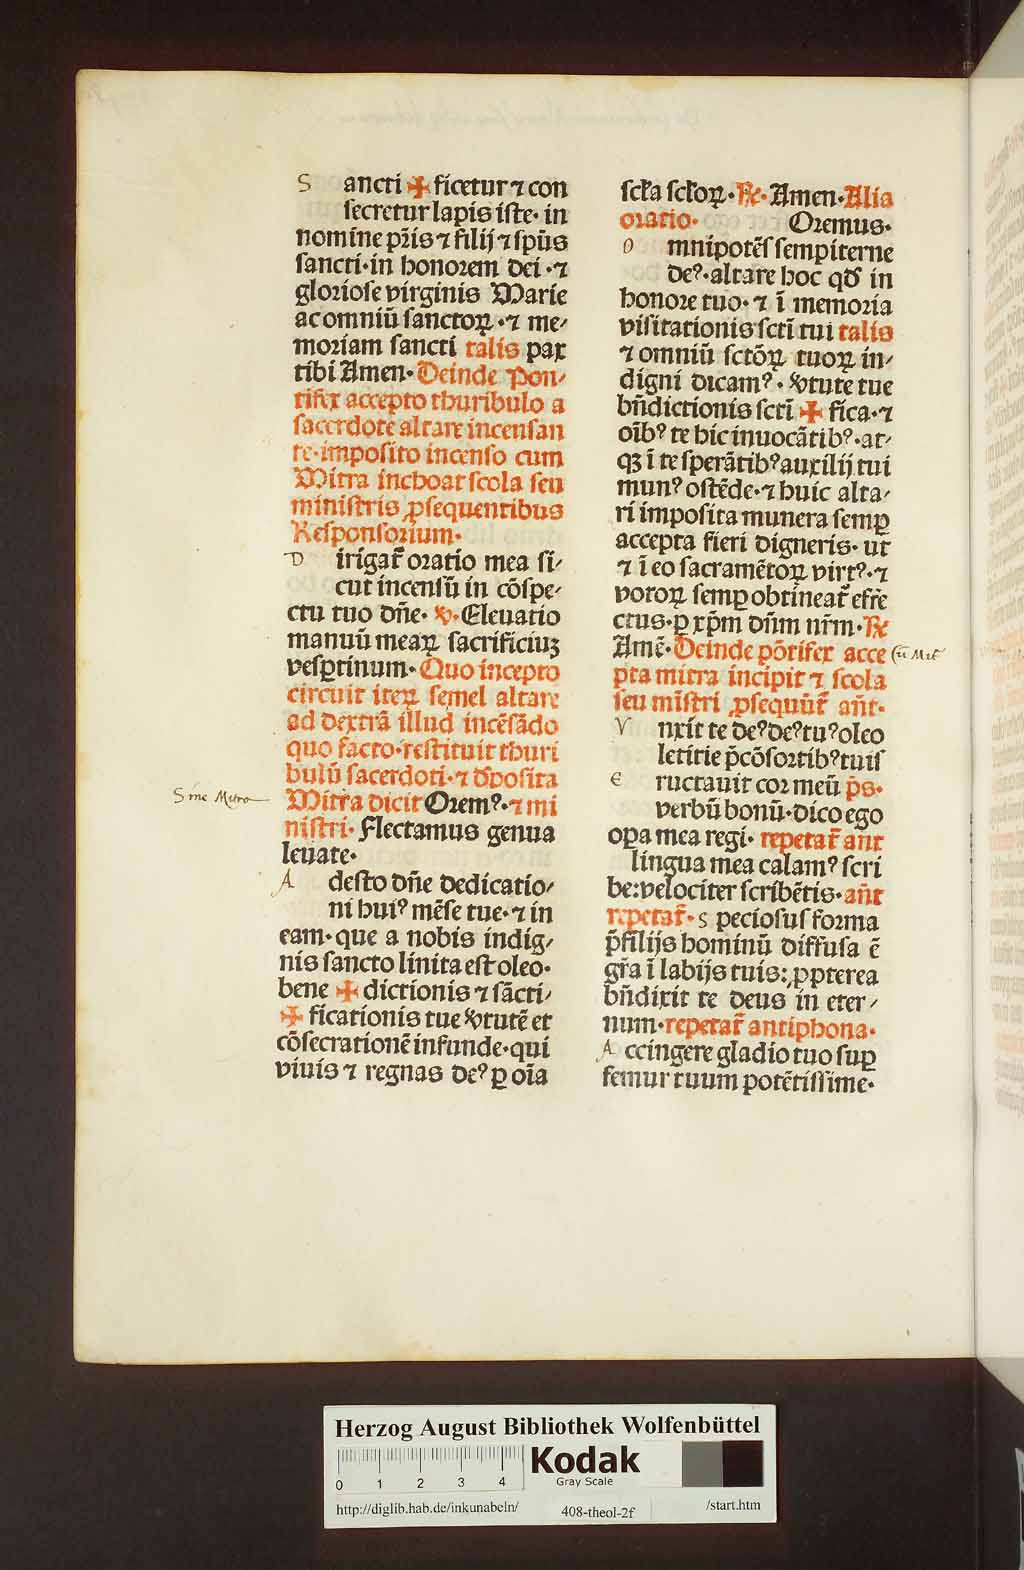 S ancti ✠ ficetur ⁊ con
secretur lapis iste· in
nomine p̄ris ⁊ filij ⁊ spūs
sancti· in honorem dei ·⁊
gloriose virginis Marie
ac omniū sanctoꝝ ·⁊ me⸗
moriam sancti talis pax
tibi Amen· Deinde Pon⸗
tifex accepto thuribulo a
sacerdote altare incensan
te· imposito incenso cum
Mitra inchoat scola seu
ministris ꝓsequentibus
Responsorium·
D irigat̄ oratio mea si⸗
cut incensū in cōspe⸗
ctu tuo dn̄e· ℣· Eleuatio
manuū meaꝝ sacrificiuꝫ
vesꝑtinum· Quo incepto
circuit iteꝝ semel altare
ad dextrā illud incēsādo
quo facto· restituit thuri
bulū sacerdoti· ⁊ dposita
Sine Mitra
Mitra dicit Orem̉· ⁊ mi
nistri· Flectamus genua
leuate·
A desto dn̄e dedicatio⸗
ni huỉ mēse tue· ⁊ in
eam· que a nobis indig⸗
nis sancto linita est oleo·
bene ✠ dictionis ⁊ sācti⸗
✠ ficationis tue v̉tutē et
cōsecrationē infunde· qui
viuis ⁊ regnas dẻ ꝑ oīa
scła scłoꝝ· ℟· Amen· Alia
oratio· Oremus·
O mnipotēs sempiterne
dẻ· altare hoc qđ in
honore tuo· ⁊ ī memoria
visitationis sctī tui talis
⁊ omniū sctōꝝ tuoꝝ in⸗
digni dicam̉· v̉tute tue
bn̄dictionis sctī ✠ fica· ⁊
oīb̉ te hic inuocātib̉· at⸗
qꝫ ī te sperātib̉ auxilij tui
mun̉ ostēde· ⁊ huic alta⸗
ri imposita munera semꝑ
accepta fieri digneris· ut
⁊ ī eo sacramētoꝝ virt̉· ⁊
votoꝝ semꝑ obtineat̄ effe
ctus· ꝑ xp̄m dn̄m nr̄m· ℟
Amē· Deinde pōtifex acce
pta mitra incipit ⁊ scola
seu mīstri ꝓsequūt̄ an̄t·
V nxit te dẻ dẻ tủ oleo
letitie p̄cōsortib̉ tuis
E ructauit cor meū p̄s·
verbū bonū· dico ego
oꝑa mea regi· repetat̄ an̄t
lingua mea calam̉ scri
be: velociter scribētis· an̄t
repetat̄· S peciosus forma
p̄filijs hominū diffusa ē
gr̄a ī labijs tuis: ꝓpterea
bn̄dixit te deus in eter⸗
num· repetat̄ antiphona·
A ccingere gladio tuo suꝑ
femur tuum potētissime·
Herzog August Bibliothek Wolfenbüttel
0 1 2 3 4
Kodak
Gray Scale
http://diglib.hab.de/inkunabeln/ 408-theol-2f /start.htm